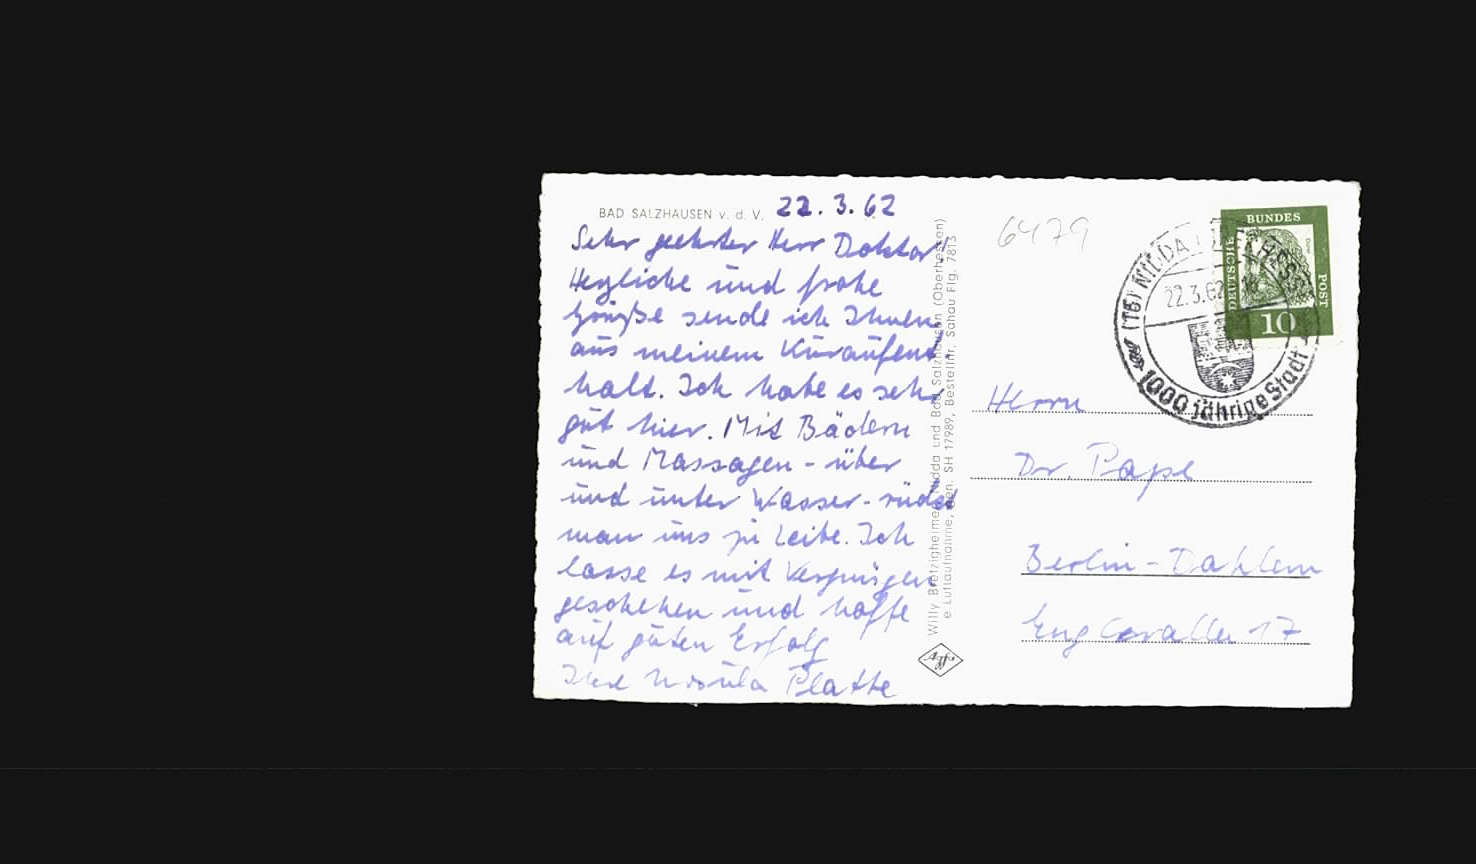 BAD SALZHAUSEN v. d. V. 22. 3. 62
Sehr geehrter Herr Doktor!
Herzliche und frohe
Grüße sende ich Ihnen
aus meinem Kuraufent-
halt. Ich habe es sehr
gut hier. Mit Bädern
und Massagen - über
und unter Wasser - rückt
man uns zu Leibe. Ich
lasse es mit Vergnügen
geschehen und hoffe
auf guten Erfolg
Ihre Ursula Platte
Willy Bretzigheimer, Nidda und Bad Salzhausen (Oberhessen)
Luftaufnahme, gen. SH 17989, Bestellnr. Schau Flg. 7813
Agfa
6479
(16) NIDDA (OBERHESS)
22.3.62
1000 jährige Stadt
DEUTSCHE BUNDES POST
10
Herrn
Dr. Pape
Berlin-Dahlem
17